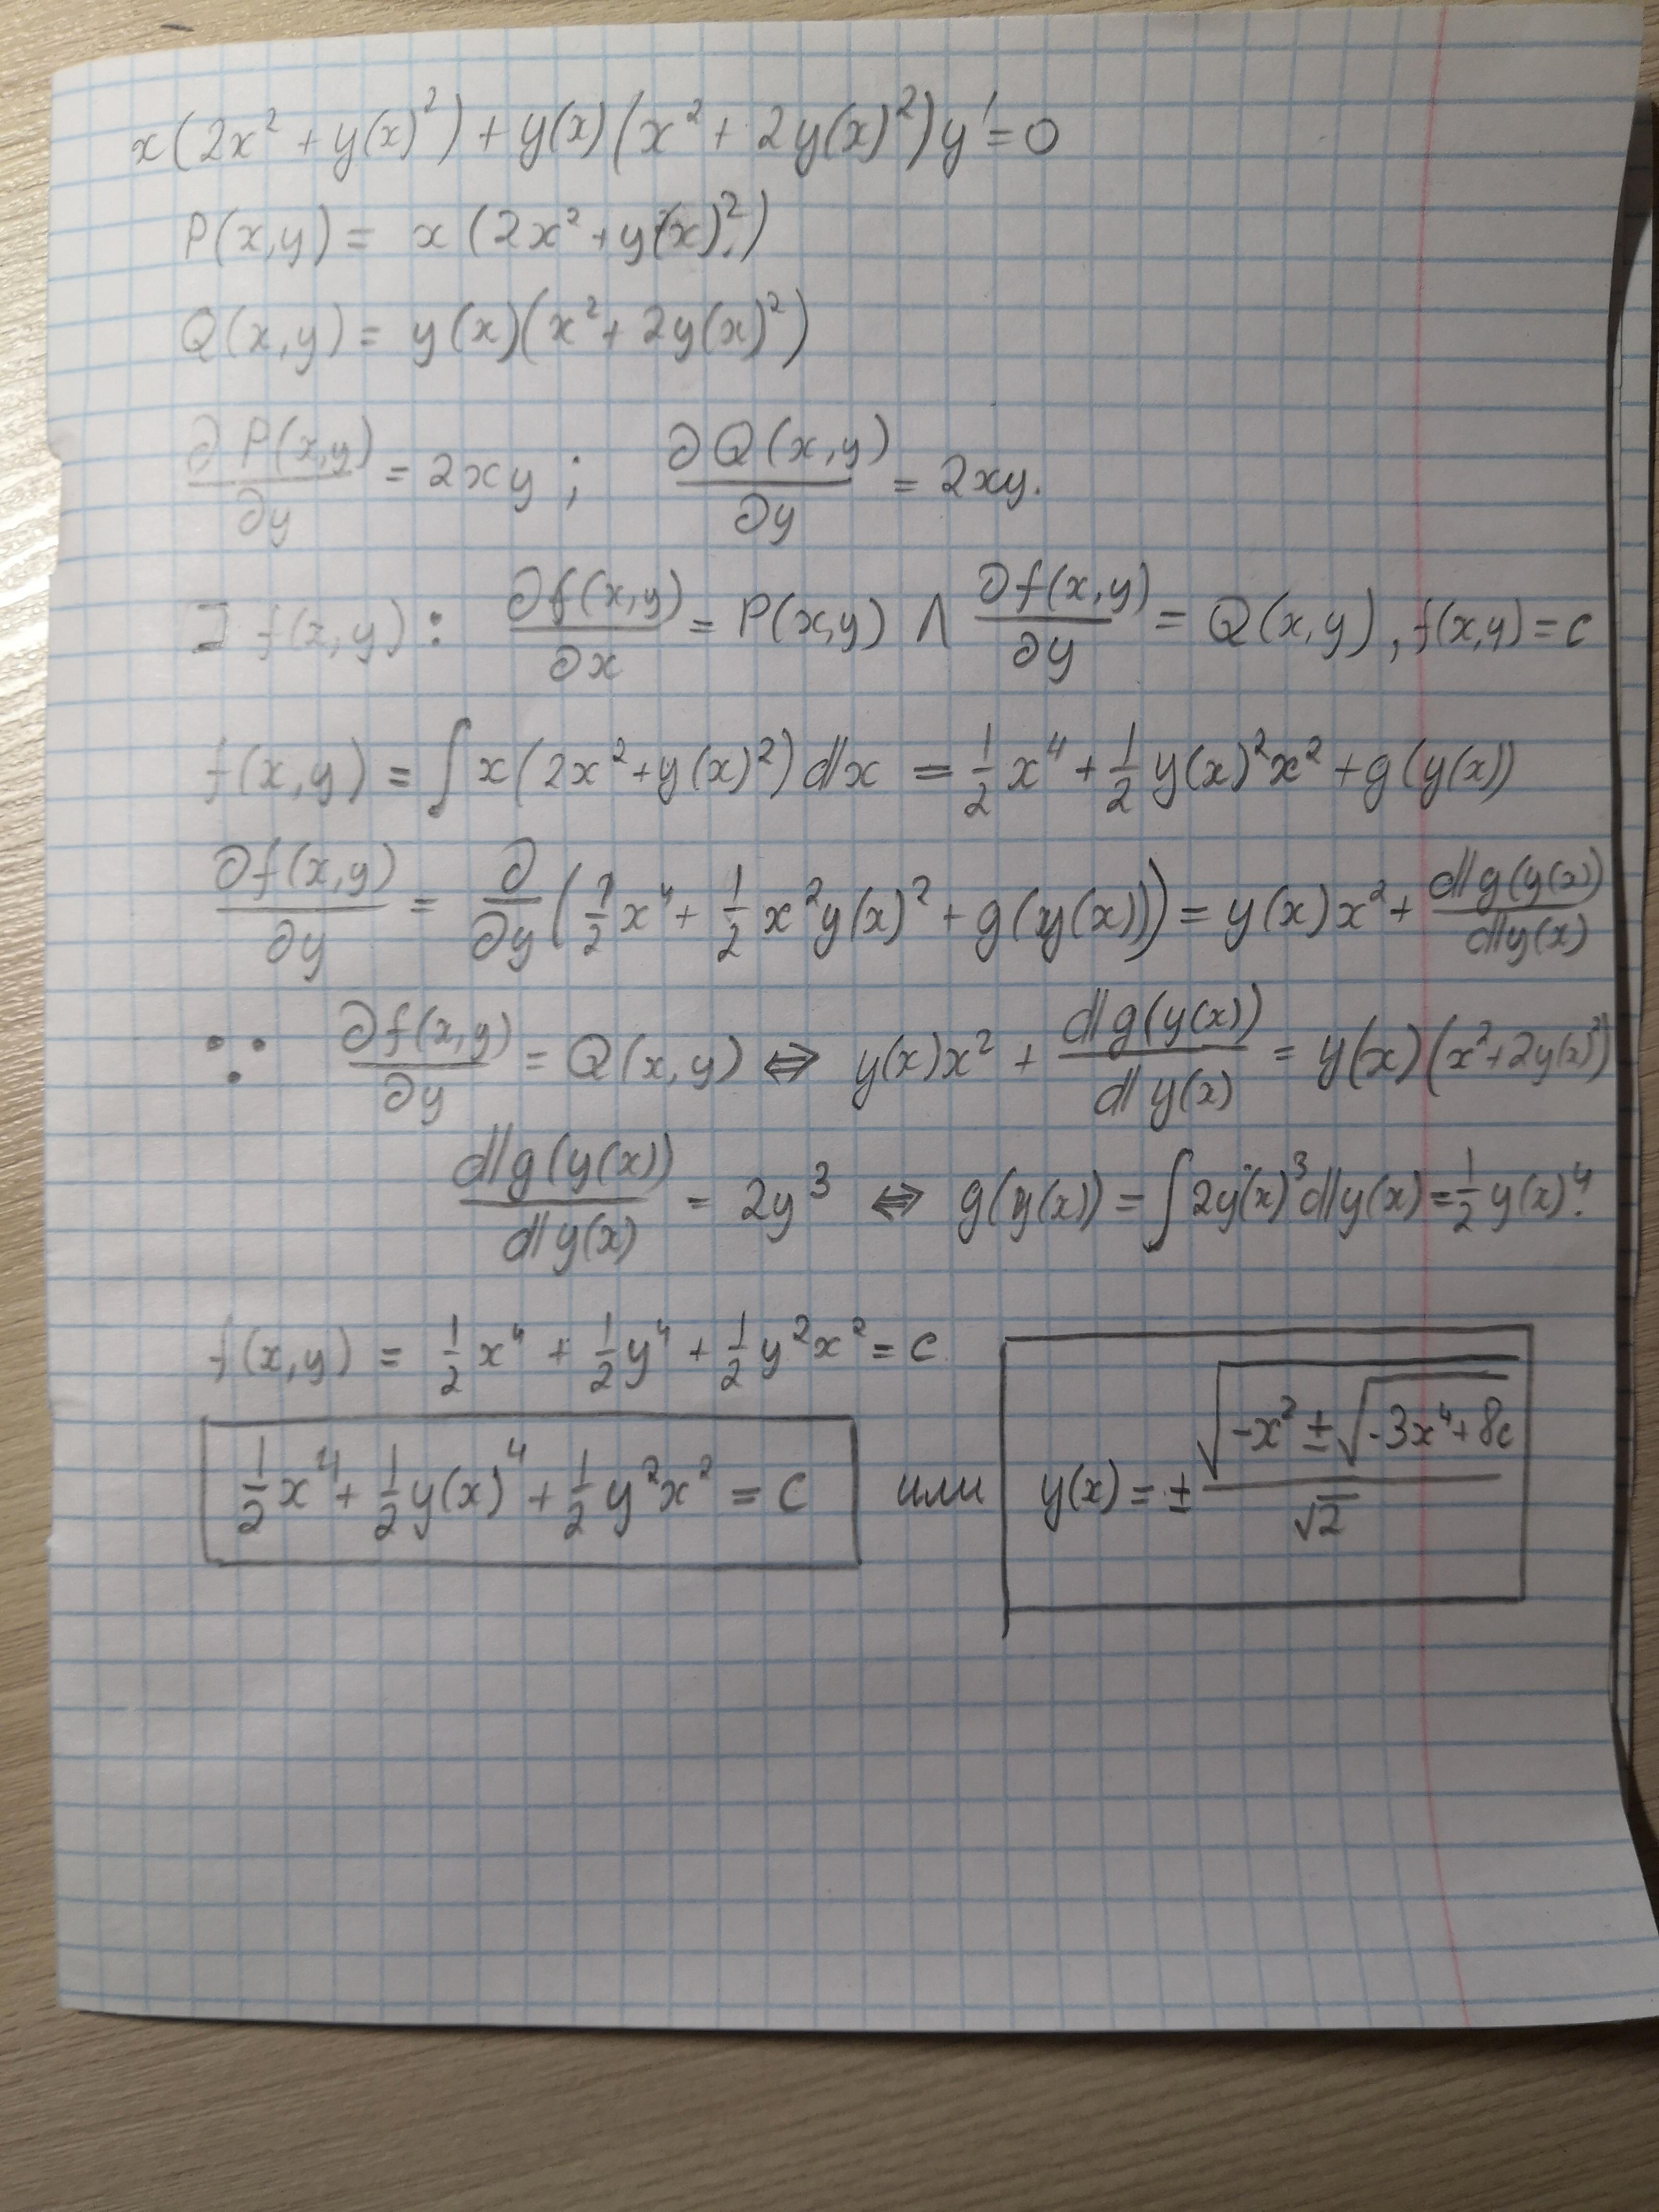 x(2x² + y(x)²) + y(x)(x² + 2y(x)²)y' = 0
P(x,y) = x(2x² + y(x)²)
Q(x,y) = y(x)(x² + 2y(x)²)
∂P(x,y)/∂y = 2xy ; ∂Q(x,y)/∂y = 2xy.
∃ f(x,y): ∂f(x,y)/∂x = P(x,y) ∧ ∂f(x,y)/∂y = Q(x,y), f(x,y) = c
f(x,y) = ∫ x(2x² + y(x)²) dx = 1/2 x⁴ + 1/2 y(x)² x² + g(y(x))
∂f(x,y)/∂y = ∂/∂y (1/2 x⁴ + 1/2 x² y(x)² + g(y(x))) = y(x)x² + dg(y(x))/dy(x)
∵ ∂f(x,y)/∂y = Q(x,y) ⇔ y(x)x² + dg(y(x))/dy(x) = y(x)(x² + 2y(x)²)
dg(y(x))/dy(x) = 2y³ ⇔ g(y(x)) = ∫ 2y(x)³ dy(x) = 1/2 y(x)⁴.
f(x,y) = 1/2 x⁴ + 1/2 y⁴ + 1/2 y² x² = c
1/2 x⁴ + 1/2 y(x)⁴ + 1/2 y² x² = c или y(x) = ± √(-x² ± √(-3x⁴ + 8c))/√2